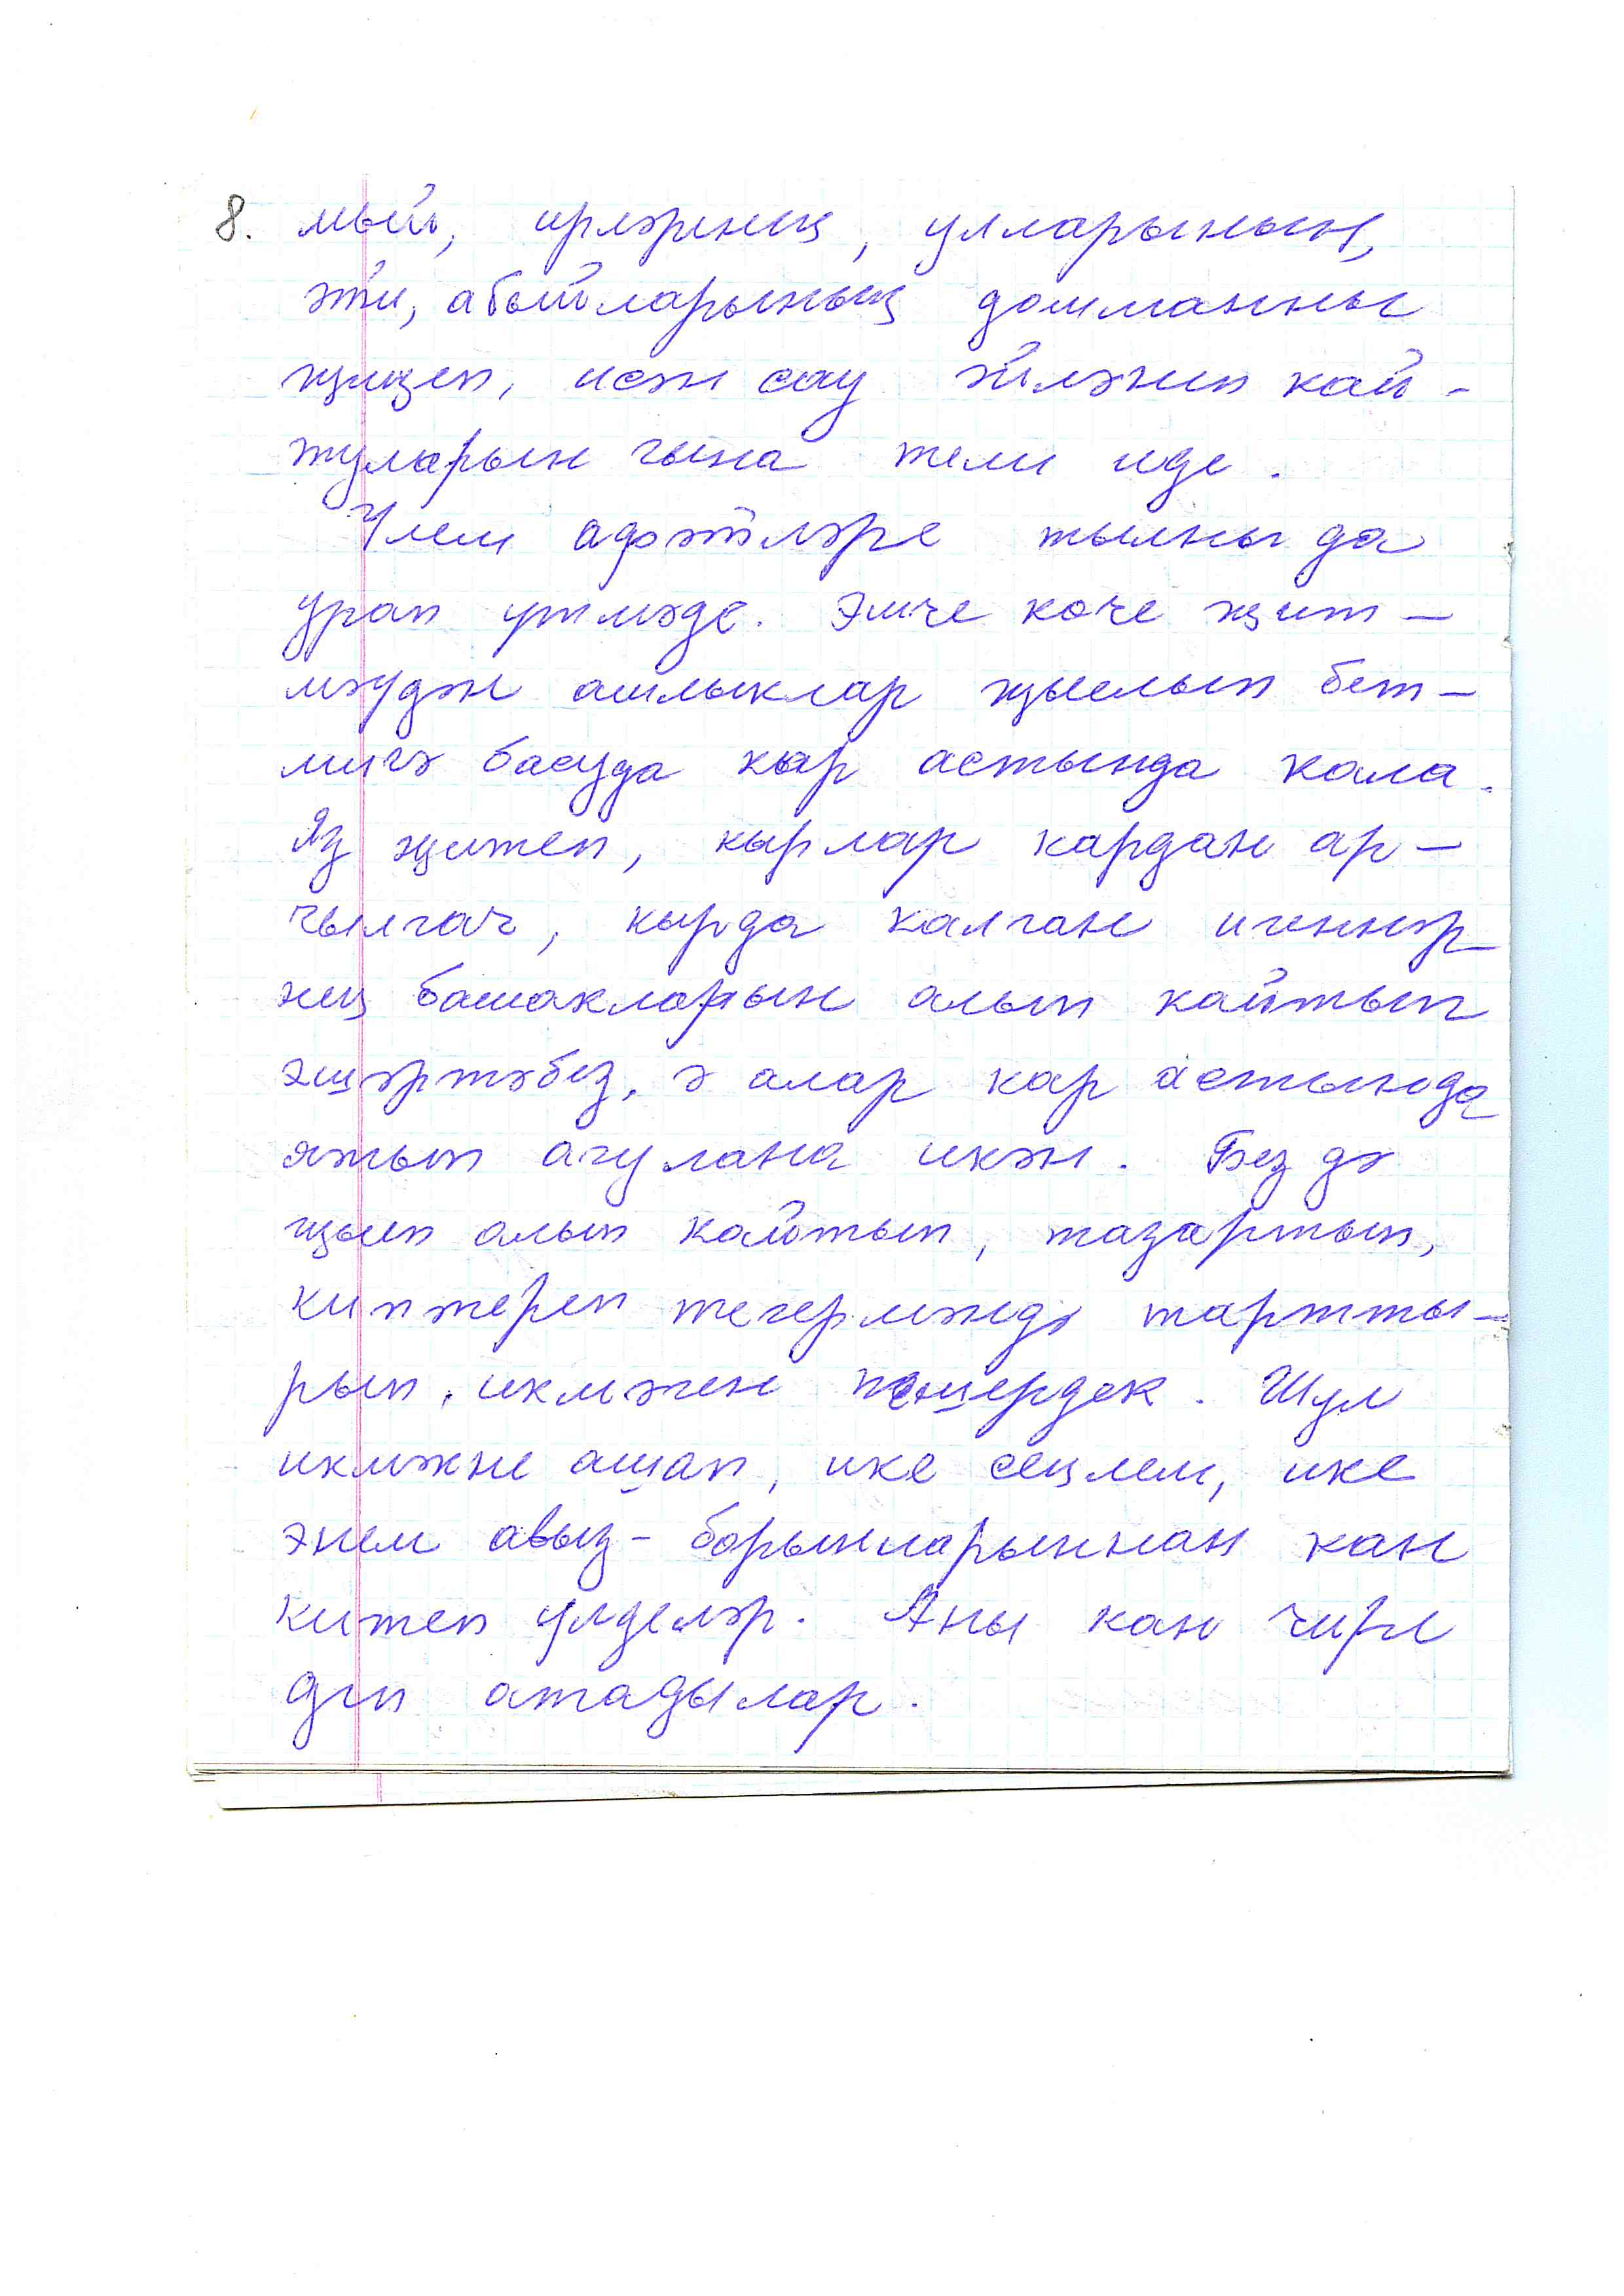 8. мый, ирләрнең, улларының,
әти, абыйларының дошманны
җиңеп, исән сау әйләнеп кай-
туларын гына тели иде.
Үлем афәтләре тылны да
урап үтмәде. Эшче көче җит-
мәүдән ашлыклар җыелып бет-
мичә басуда кар астында кала.
Яз җитеп, кырлар кардан ар-
чылгач, кырда калган игеннәр
нең башакларын алып кайтып
әшәртәбез, ә алар кар астында
ятып агулана икән. Без дә
җыеп алып кайтып, тазартып,
киптереп тегермәндә тартты-
рып, икмәген пешердек. Шул
икмәкне ашап, ике сеңлем, ике
энем авыз-борыннарыннан кан
китеп үлделәр. Аны кан чире
дип атадылар.